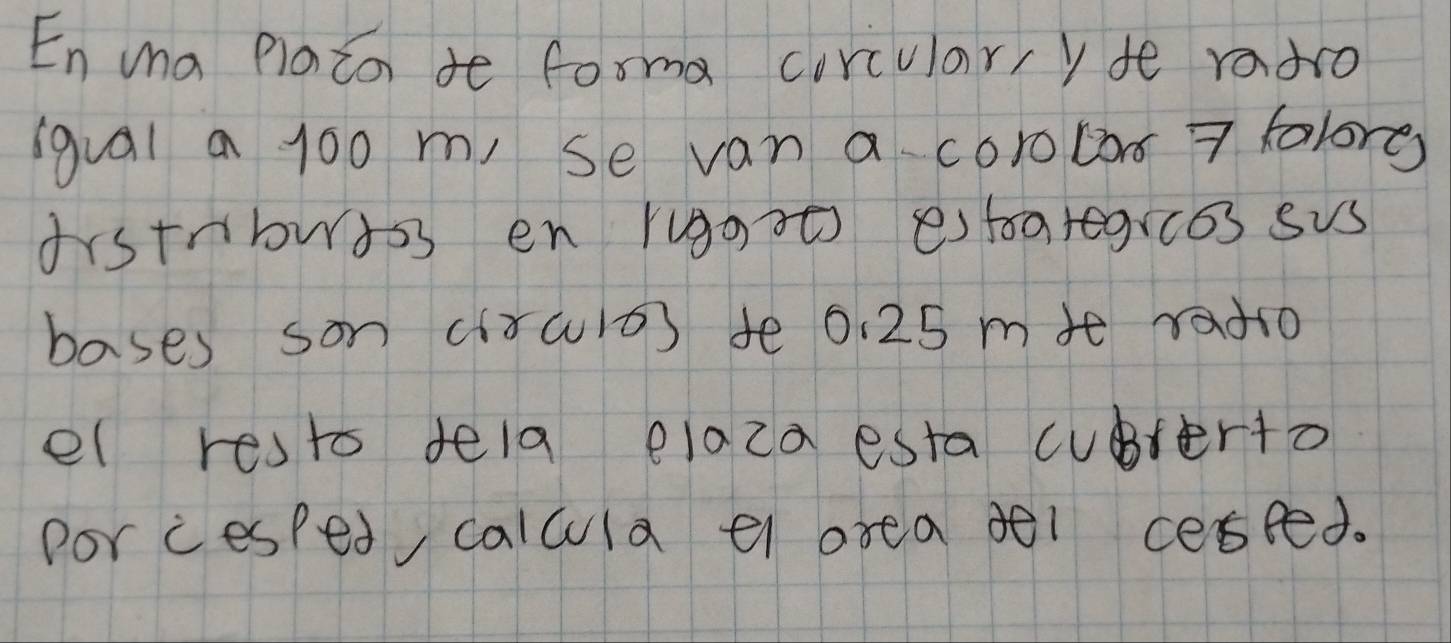 En una plaza de forma circular, y de radio
igual a 100 m, se van a colocar 7 falores
distribuidos en lugares estrategicos sus
bases son circulos de 0.25 m de radio
el resto dela plaza esta cubierto
por cesped, calcula el area del cesped.